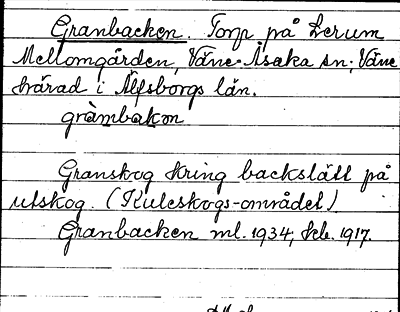 Granbacken. Torp på Lerum
Mellomgården, Väne-Åsaka sn; Väne
härad i Älfsborgs län.
gràmbakɷn
Granskog kring backslätt på
utskog. (Kuleskogs-området)
Granbacken ml. 1934, skb. 1917.